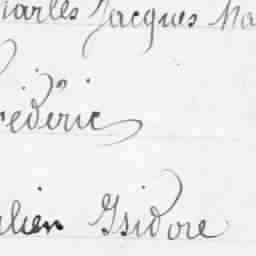 harles Jacques Ma
réderic
ulien Isidore